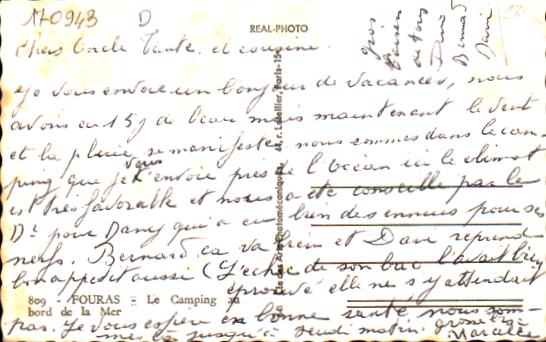 170943 D
REAL-PHOTO
Chers Oncle Tante. et cousine.
gros
baisers
a tous
Dany
Bernard
Dave
Je vous envoie un bonjour de vacances, nous
avons eu 15 j de beau mais maintenant le vent
et la pluie se manifeste nous sommes dans le cam
ping que je vous envoie près de l'océan ici le climat
est très favorable et nous a été conseillé par le
Dr pour Dany qui a eu bien des ennuis pour ses
nerfs. Bernard, ca va bien et Dave reprend
bon appetit aussi (L'échec de son bac l'avait bien
éprouvé elle ne s'y attendait
809 - FOURAS - Le Camping au
bord de la Mer
pas. Je vous espère en bonne santé nous som-
mes là jusqu'à Jeudi matin. Gros bises
Marcelle
Les Arts Photomécaniques 44, r. Letellier, Paris-15e